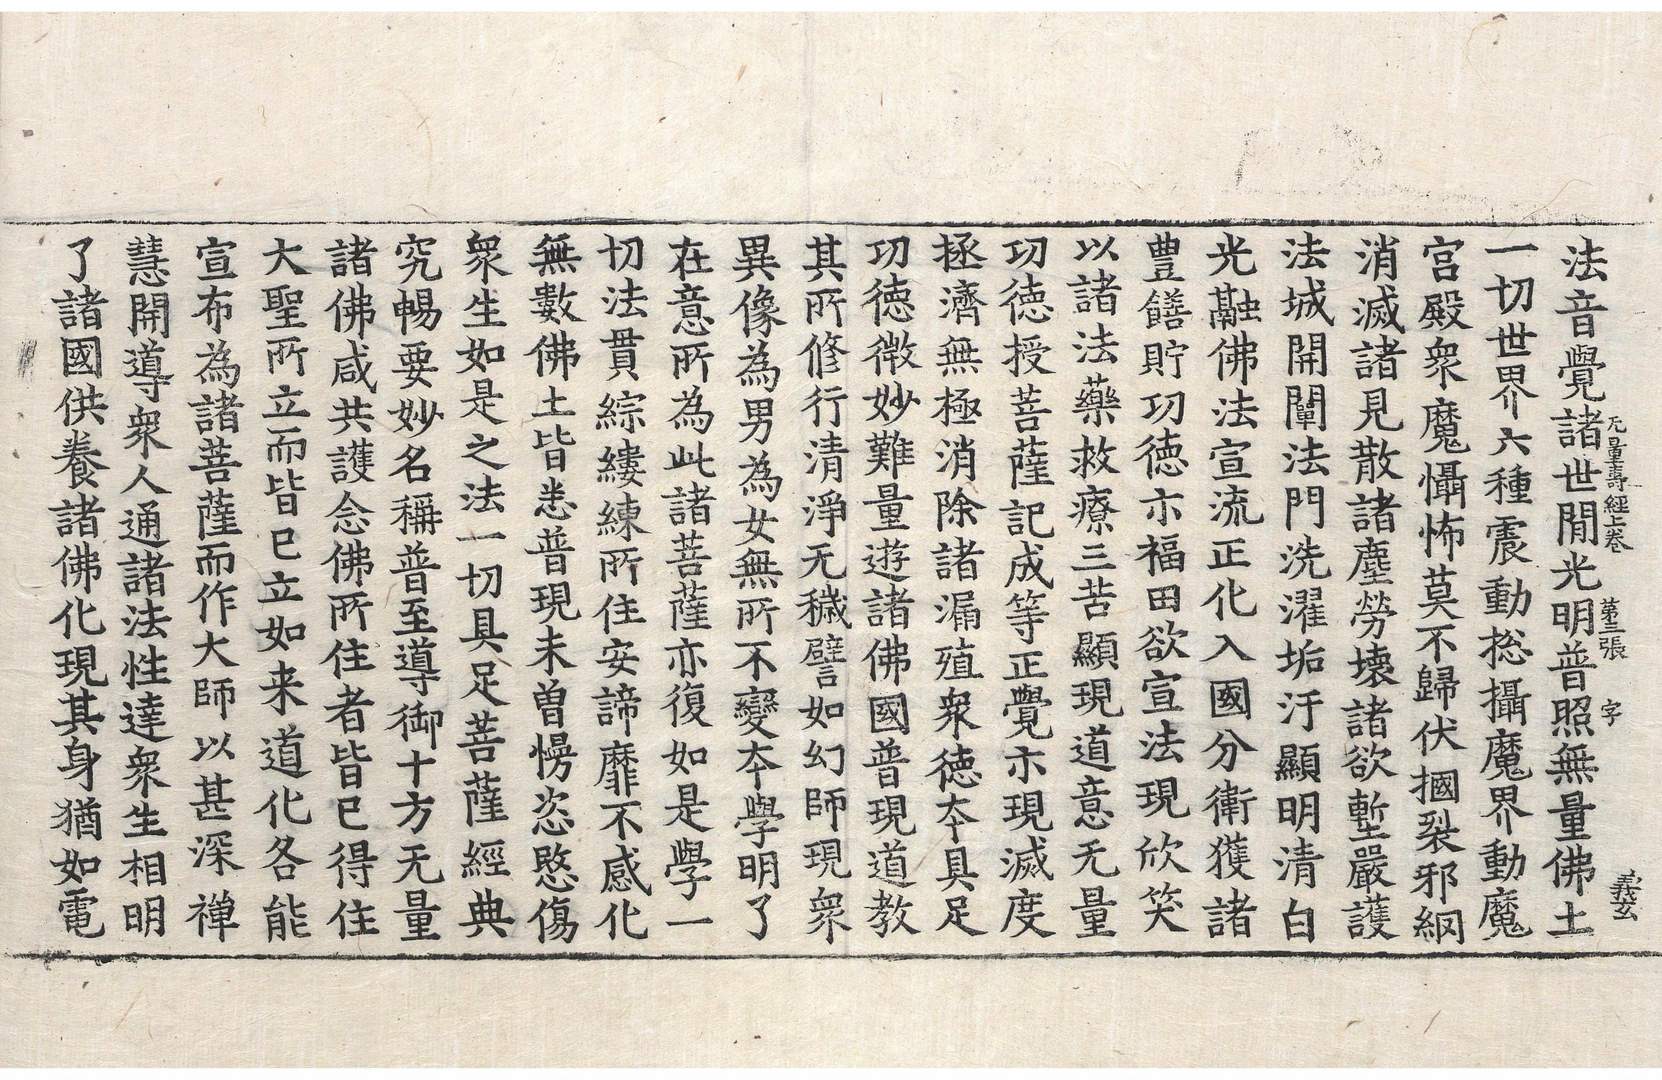 无量壽經上卷　第三張　字　義玄
法音覺諸世閒光明普照無量佛土
一切世界六種震動捴攝魔界動魔
宮殿衆魔懾怖莫不歸伏摑裂邪網
消滅諸見散諸塵勞壞諸欲塹嚴護
法城開闡法門洗濯垢汙顯明清白
光融佛法宣流正化入國分衛獲諸
豊饍貯功徳示福田欲宣法現欣笑
以諸法藥救療三苦顯現道意无量
功徳授菩薩記成等正覺示現滅度
拯濟無極消除諸漏殖衆徳夲具足
功徳微妙難量遊諸佛國普現道教
其所修行清淨无穢譬如幻師現衆
異像為男為女無所不變夲學明了
在意所為此諸菩薩亦復如是學一
切法貫綜縷練所住安諦靡不感化
無數佛土皆悉普現未曽慢恣愍傷
衆生如是之法一切具足菩薩經典
究暢要妙名稱普至導御十方无量
諸佛咸共護念佛所住者皆已得住
大聖所立而皆已立如来道化各能
宣布為諸菩薩而作大師以甚深禪
慧開導衆人通諸法性達衆生相明
了諸國供養諸佛化現其身猶如電